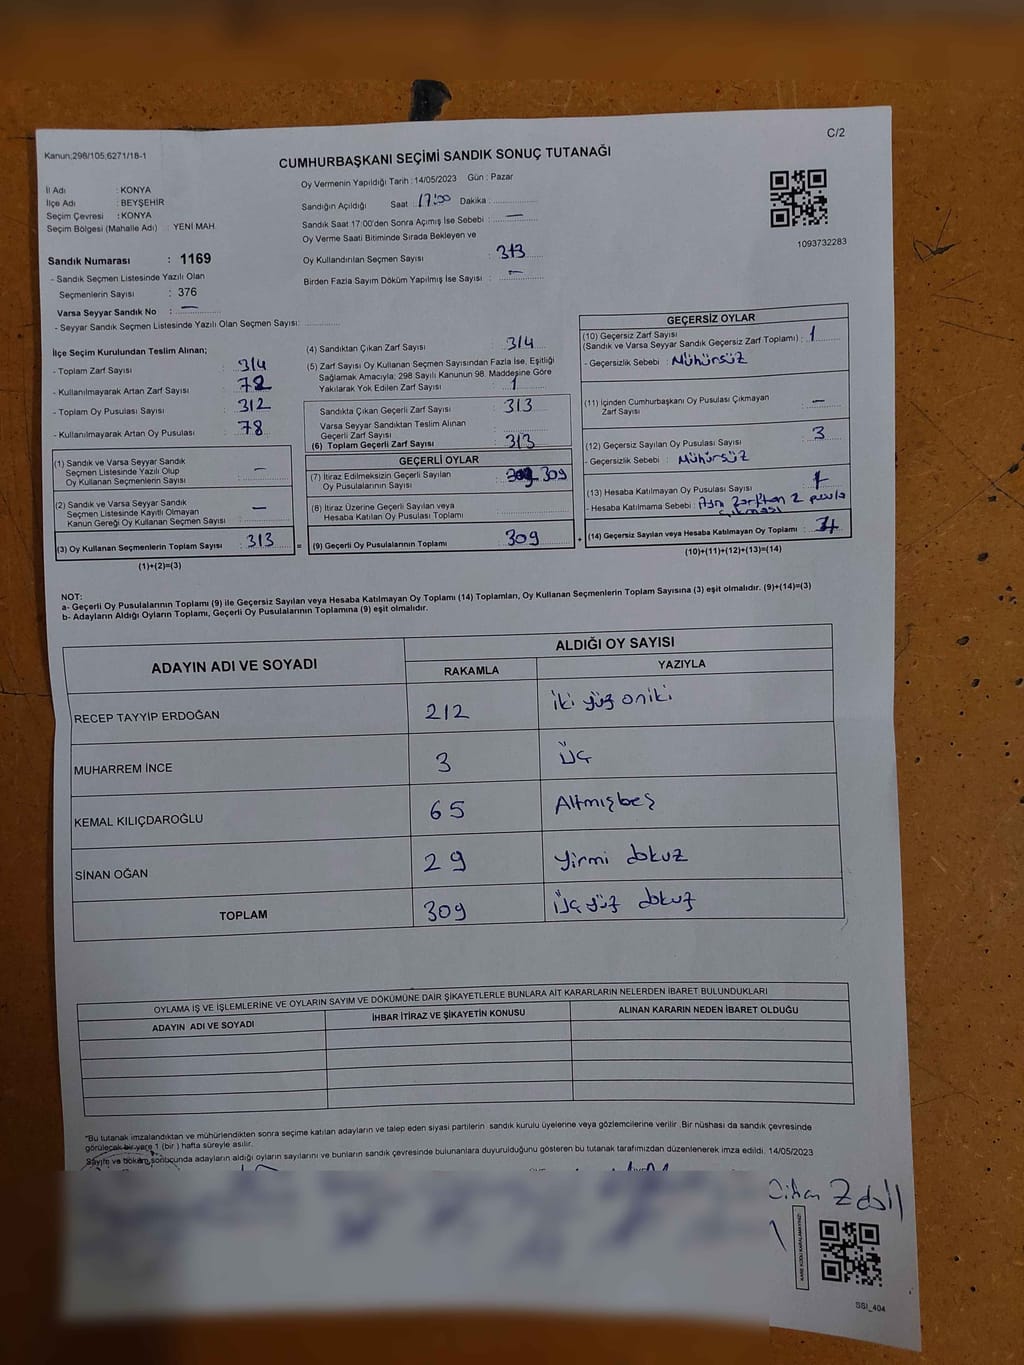 C/2
Kanun:298/105,6271/18-1
CUMHURBAŞKANI SEÇİMİ SANDIK SONUÇ TUTANAĞI
İl Adı : KONYA
İlçe Adı : BEYŞEHİR
Seçim Çevresi : KONYA
Seçim Bölgesi (Mahalle Adı) : YENİ MAH.
Sandık Numarası : 1169
- Sandık Seçmen Listesinde Yazılı Olan
Seçmenlerin Sayısı : 376
Varsa Seyyar Sandık No : —
- Seyyar Sandık Seçmen Listesinde Yazılı Olan Seçmen Sayısı:
Oy Vermenin Yapıldığı Tarih : 14/05/2023 Gün : Pazar
Sandığın Açıldığı Saat : 17:00 Dakika :
Sandık Saat 17:00'den Sonra Açımış İse Sebebi : —
Oy Verme Saati Bitiminde Sırada Bekleyen ve
Oy Kullandırılan Seçmen Sayısı : 313
Birden Fazla Sayım Döküm Yapılmış İse Sayısı : —
1093732283
İlçe Seçim Kurulundan Teslim Alınan;
- Toplam Zarf Sayısı : 314
- Kullanılmayarak Artan Zarf Sayısı : 78
- Toplam Oy Pusulası Sayısı : 312
- Kullanılmayarak Artan Oy Pusulası : 78
(1) Sandık ve Varsa Seyyar Sandık
Seçmen Listesinde Yazılı Olup
Oy Kullanan Seçmenlerin Sayısı : —
(2) Sandık ve Varsa Seyyar Sandık
Seçmen Listesinde Kayıtlı Olmayan
Kanun Gereği Oy Kullanan Seçmen Sayısı : —
(3) Oy Kullanan Seçmenlerin Toplam Sayısı : 313
(1)+(2)=(3)
(4) Sandıktan Çıkan Zarf Sayısı : 314
(5) Zarf Sayısı Oy Kullanan Seçmen Sayısından Fazla İse, Eşitliği
Sağlamak Amacıyla; 298 Sayılı Kanunun 98. Maddesine Göre
Yakılarak Yok Edilen Zarf Sayısı : 1
Sandıkta Çıkan Geçerli Zarf Sayısı : 313
Varsa Seyyar Sandıktan Teslim Alınan
Geçerli Zarf Sayısı :
(6) Toplam Geçerli Zarf Sayısı : 313
GEÇERLİ OYLAR
(7) İtiraz Edilmeksizin Geçerli Sayılan
Oy Pusulalarının Sayısı : 309
(8) İtiraz Üzerine Geçerli Sayılan veya
Hesaba Katılan Oy Pusulası Toplamı :
= (9) Geçerli Oy Pusulalarının Toplamı : 309 +
GEÇERSİZ OYLAR
(10) Geçersiz Zarf Sayısı
(Sandık ve Varsa Seyyar Sandık Geçersiz Zarf Toplamı) : 1
- Geçersizlik Sebebi : Mühürsüz
(11) İçinden Cumhurbaşkanı Oy Pusulası Çıkmayan
Zarf Sayısı : —
(12) Geçersiz Sayılan Oy Pusulası Sayısı : 3
- Geçersizlik Sebebi : Mühürsüz
(13) Hesaba Katılmayan Oy Pusulası Sayısı : 1
- Hesaba Katılmama Sebebi : Aynı Zarftan 2 pusula
çıkması
(14) Geçersiz Sayılan veya Hesaba Katılmayan Oy Toplamı :
(10)+(11)+(12)+(13)=(14)
NOT:
a- Geçerli Oy Pusulalarının Toplamı (9) ile Geçersiz Sayılan veya Hesaba Katılmayan Oy Toplamı (14) Toplamları, Oy Kullanan Seçmenlerin Toplam Sayısına (3) eşit olmalıdır. (9)+(14)=(3)
b- Adayların Aldığı Oyların Toplamı, Geçerli Oy Pusulalarının Toplamına (9) eşit olmalıdır.
ADAYIN ADI VE SOYADI ALDIĞI OY SAYISI
RAKAMLA YAZIYLA
RECEP TAYYİP ERDOĞAN 212 iki yüz oniki
MUHARREM İNCE 3 üç
KEMAL KILIÇDAROĞLU 65 Altmışbeş
SİNAN OĞAN 29 yirmi dokuz
TOPLAM 309 üç yüz dokuz
OYLAMA İŞ VE İŞLEMLERİNE VE OYLARIN SAYIM VE DÖKÜMÜNE DAİR ŞİKAYETLERLE BUNLARA AİT KARARLARIN NELERDEN İBARET BULUNDUKLARI
ADAYIN ADI VE SOYADI İHBAR İTİRAZ VE ŞİKAYETİN KONUSU ALINAN KARARIN NEDEN İBARET OLDUĞU
*Bu tutanak imzalandıktan ve mühürlendikten sonra seçime katılan adayların ve talep eden siyasi partilerin sandık kurulu üyelerine veya gözlemcilerine verilir. Bir nüshası da sandık çevresinde
görülecek bir yere 1 (bir ) hafta süreyle asılır.
Sayım ve döküm sonucunda adayların aldığı oyların sayılarını ve bunların sandık çevresinde bulunanlara duyurulduğunu gösteren bu tutanak tarafımızdan düzenlenerek imza edildi. 14/05/2023
KARE KODU KARALAMAYINIZ!
SSI_404